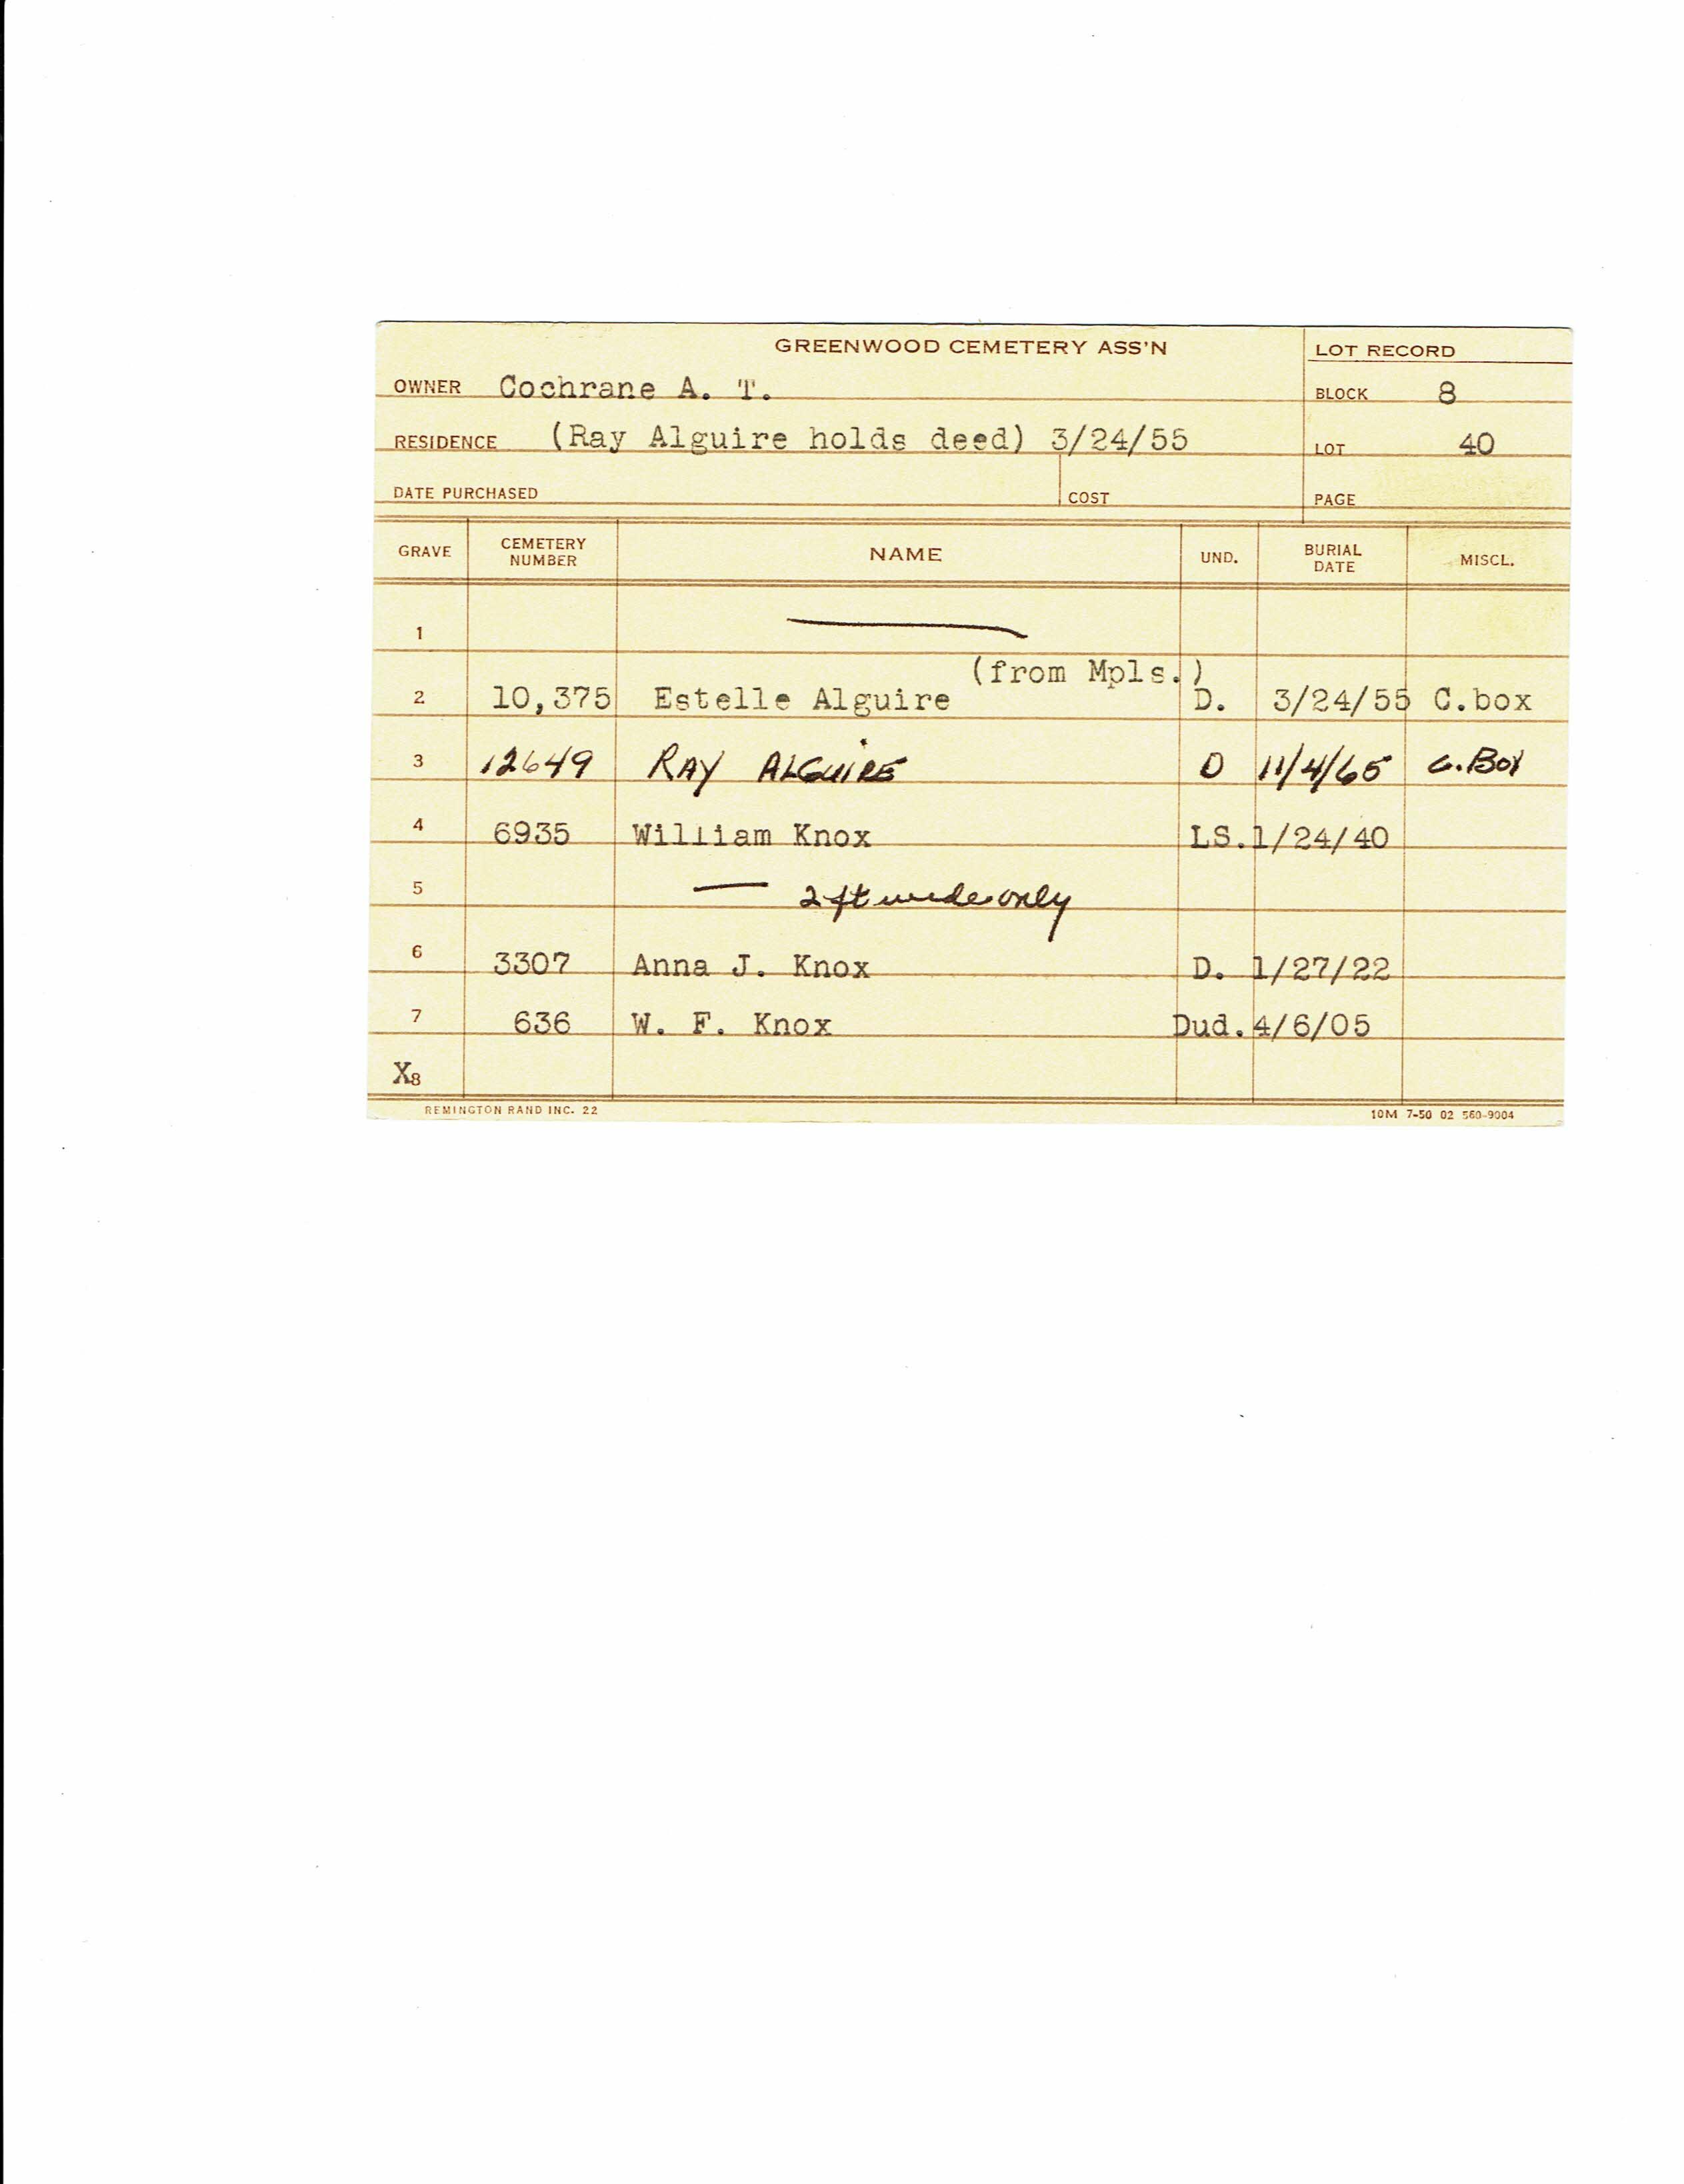 GREENWOOD CEMETERY ASS'N LOT RECORD
OWNER Cochrane A. T. BLOCK 8
RESIDENCE (Ray Alguire holds deed) 3/24/55 LOT 40
DATE PURCHASED COST PAGE
GRAVE CEMETERY NUMBER NAME UND. BURIAL DATE MISCL.
1
(from Mpls.)
2 10,375 Estelle Alguire D. 3/24/55 C.box
3 12649 RAY ALGUIRE D 11/4/65 C.Box
4 6935 William Knox LS. 1/24/40
5 — 2 ft wide only
6 3307 Anna J. Knox D. 1/27/22
7 636 W. F. Knox Dud. 4/6/05
X8
REMINGTON RAND INC. 22 10M 7-50 02 560-9004